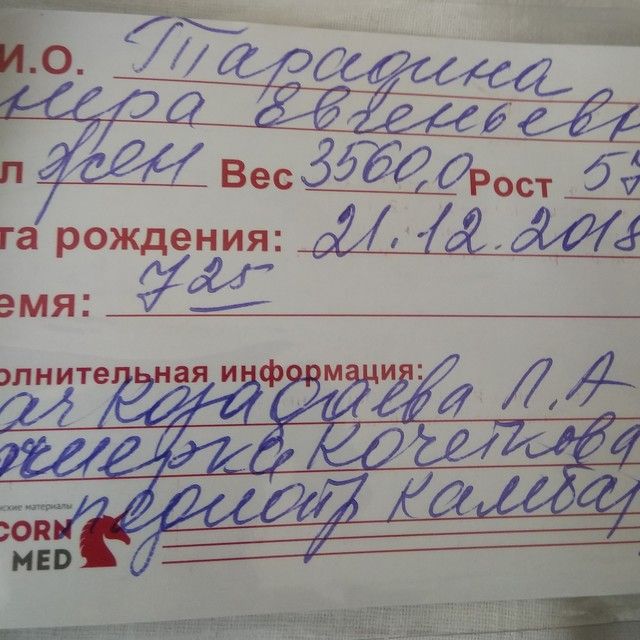 И.О. Тарадина
нера Евгеньевн
л жен Вес 3560,0 Рост 57
та рождения: 21.12.2018
емя: 7 25
олнительная информация:
ач Козадаева Л.А
Кочеткова
педиатр Камбар
нские материалы
CORN
MED